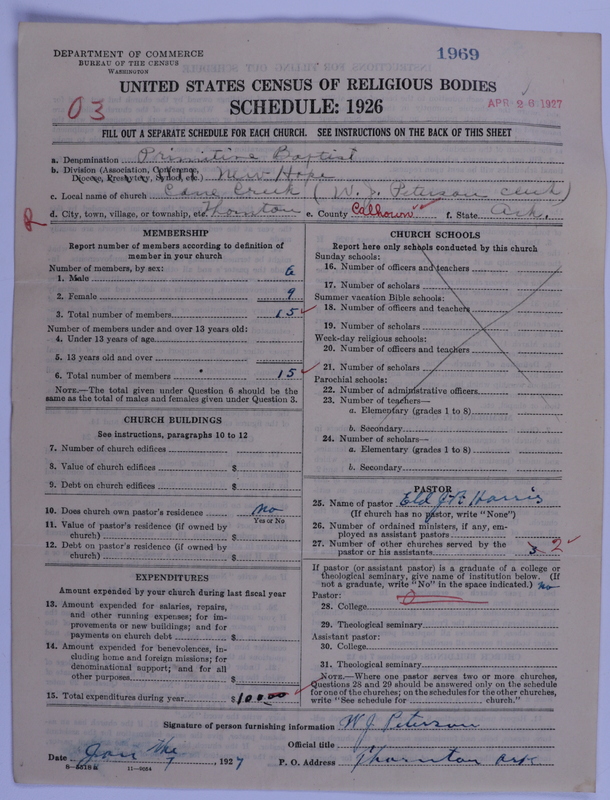 DEPARTMENT OF COMMERCE
BUREAU OF THE CENSUS
WASHINGTON
1969
UNITED STATES CENSUS OF RELIGIOUS BODIES
SCHEDULE: 1926
03
APR 26 1927
FILL OUT A SEPARATE SCHEDULE FOR EACH CHURCH. SEE INSTRUCTIONS ON THE BACK OF THIS SHEET
a. Denomination Primitive Baptist
b. Division (Association, Conference, Diocese, Presbytery, Synod, etc.) New Hope
c. Local name of church Cane Creek (W. J. Peterson clerk)
d. City, town, village, or township, etc. Thornton e. County Calhoun f. State Ark.
MEMBERSHIP
Report number of members according to definition of
member in your church
Number of members, by sex:
1. Male 6
2. Female 9
3. Total number of members 15
Number of members under and over 13 years old:
4. Under 13 years of age
5. 13 years old and over
6. Total number of members 15
NOTE.—The total given under Question 6 should be
same as the total of males and females given under Question 3.
CHURCH BUILDINGS
See instructions, paragraphs 10 to 12
7. Number of church edifices
8. Value of church edifices $
9. Debt on church edifices $
10. Does church own pastor's residence No
Yes or No
11. Value of pastor's residence (if owned by
church) $
12. Debt on pastor's residence (if owned by
church) $
EXPENDITURES
Amount expended by your church during last fiscal year
13. Amount expended for salaries, repairs,
and other running expenses; for im-
provements or new buildings; and for
payments on church debt $
14. Amount expended for benevolences, in-
cluding home and foreign missions; for
denominational support; and for all
other purposes $
15. Total expenditures during year $10.00
CHURCH SCHOOLS
Report here only schools conducted by this church
Sunday schools:
16. Number of officers and teachers
17. Number of scholars
Summer vacation Bible schools:
18. Number of officers and teachers
19. Number of scholars
Week-day religious schools:
20. Number of officers and teachers
21. Number of scholars
Parochial schools:
22. Number of administrative officers
23. Number of teachers—
a. Elementary (grades 1 to 8)
b. Secondary
24. Number of scholars—
a. Elementary (grades 1 to 8)
b. Secondary
PASTOR
25. Name of pastor Eld J. B. Harris
(If church has no pastor, write "None")
26. Number of ordained ministers, if any, em-
ployed as assistant pastors
27. Number of other churches served by the
pastor or his assistants 3 2
If pastor (or assistant pastor) is a graduate of a college or
theological seminary, give name of institution below. (If
not a graduate, write "No" in the space indicated.) No
Pastor:
28. College
29. Theological seminary
Assistant pastor:
30. College
31. Theological seminary
NOTE.—Where one pastor serves two or more churches,
Questions 28 and 29 should be answered only on the schedule
for one of the churches; on the schedules for the other churches,
write "See schedule for church."
Signature of person furnishing information W. J. Peterson
Official title
Date Jan the 7, 1927 P. O. Address Thornton Ark
8-5518a 11-9024